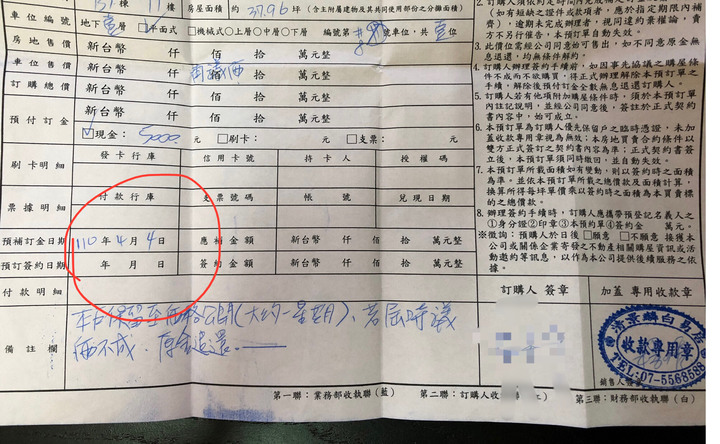 房屋面積 約 37.96 坪(含主附屬建物及其共同使用部份之分攤面積)
車位編號 地下壹層 ☑平面式 □機械式○上層○中層○下層 編號第 號車位,共壹位
房地售價 新台幣 仟 佰 拾 萬元整
車位售價 新台幣 仟 佰 拾 萬元整
訂購總價 新台幣 仟 佰 拾 萬元整
預付訂金 新台幣 仟 佰 拾 萬元整
☑現金: 5000 元 □刷卡: 元 □支票: 元
刷卡明細 發卡行庫 信用卡號 持卡人 授權碼
票據明細 付款行庫 支票號碼 帳號 兌現日期
預補訂金日期 110年4月4日 應補金額 新台幣 仟 佰 拾 萬元整
預訂簽約日期 年 月 日 簽約金額 新台幣 仟 佰 拾 萬元整
付款明細
備註欄
本戶保留至價格公開(大約一星期)、若屆時議
價不成.原金退還.
(如有短缺之證件或款項者,應於指定期限內補
齊),逾期未完成辦理者,視同違約棄權論,賣
方不另行催告,本預訂單自動失效。
3.此價位需經公司同意始可售出,如不同意原金無
息退還,均無條件解約。
4.訂購人辦理簽約手續前,如因事先協議之購屋條
件不成而不欲購買,得正式辦理解除本預訂單之
手續,解除後預付訂金全數無息退還訂購人。
5.訂購人若有他項附加購屋條件時,須於本預訂單
內註記說明,並經公司同意後,簽註於正式契約
書內容中,始可成立。
6.本預訂單為訂購人優先保留戶之臨時憑證,未加
蓋收款專用章視為無效;本房地買賣合約條件以
雙方正式簽訂之契約內容為準;正式契約書簽立
後,本預訂單須同時繳回,並自動失效。
7.本預訂單所載面積如有變動,則以簽約時之面積
為準。並依本預訂單所載之總價款及面積計算,
換算所得每坪單價乘以簽約時之面積為本買賣標
的之總價款。
8.辦理簽約手續時,訂購人應攜帶預登記名義人之
①身分證②印章③本預約單④簽約金 萬元。
※徵詢:預購人於日後 □願意 □不願意 接獲本
公司或關係企業寄發之不動產相關購屋資訊或活
動邀約等訊息,以作為本公司提供後續服務之依
據。
訂購人 簽章 加蓋 專用收款章
收款專用章
TEL:07-5568588
銷售人員
第一聯:業務部收執聯(藍) 第二聯:訂購人收執聯 第三聯:財務部收執聯(白)